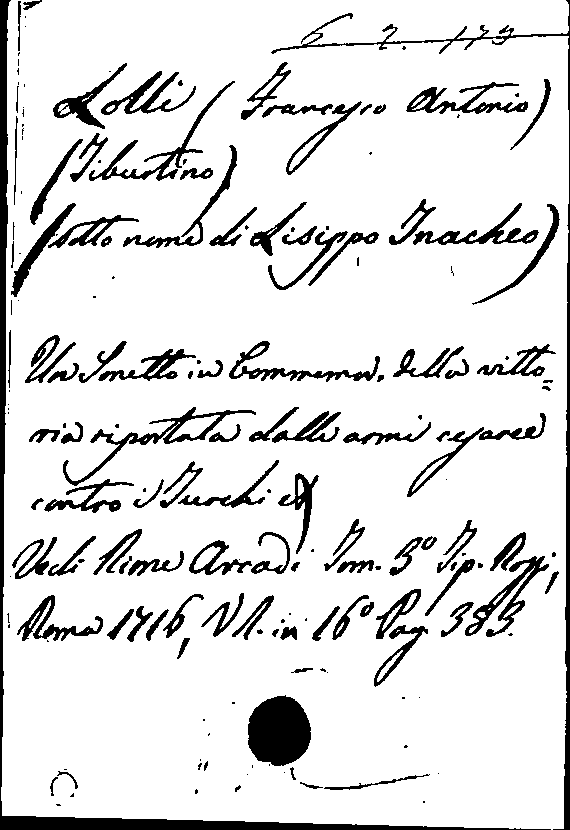 6 2. 173
Lolli (Francesco Antonio)
(Tiburtino)
(sotto nome di Lisippo Inacheo)
Un Sonetto in Commemor. della vitto=
ria riportata dalle armi cesaree
contro i Turchi
Vedi Rime Arcadi Tom. 3º Tip. Rossi,
Roma 1716, VR. in 16º Pag. 383.